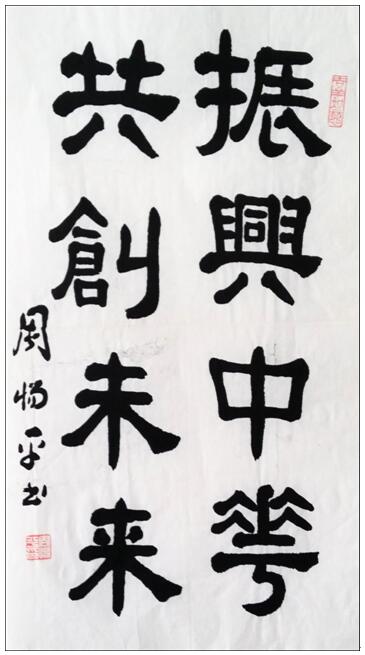 振興中華
共創未来
周惕平书